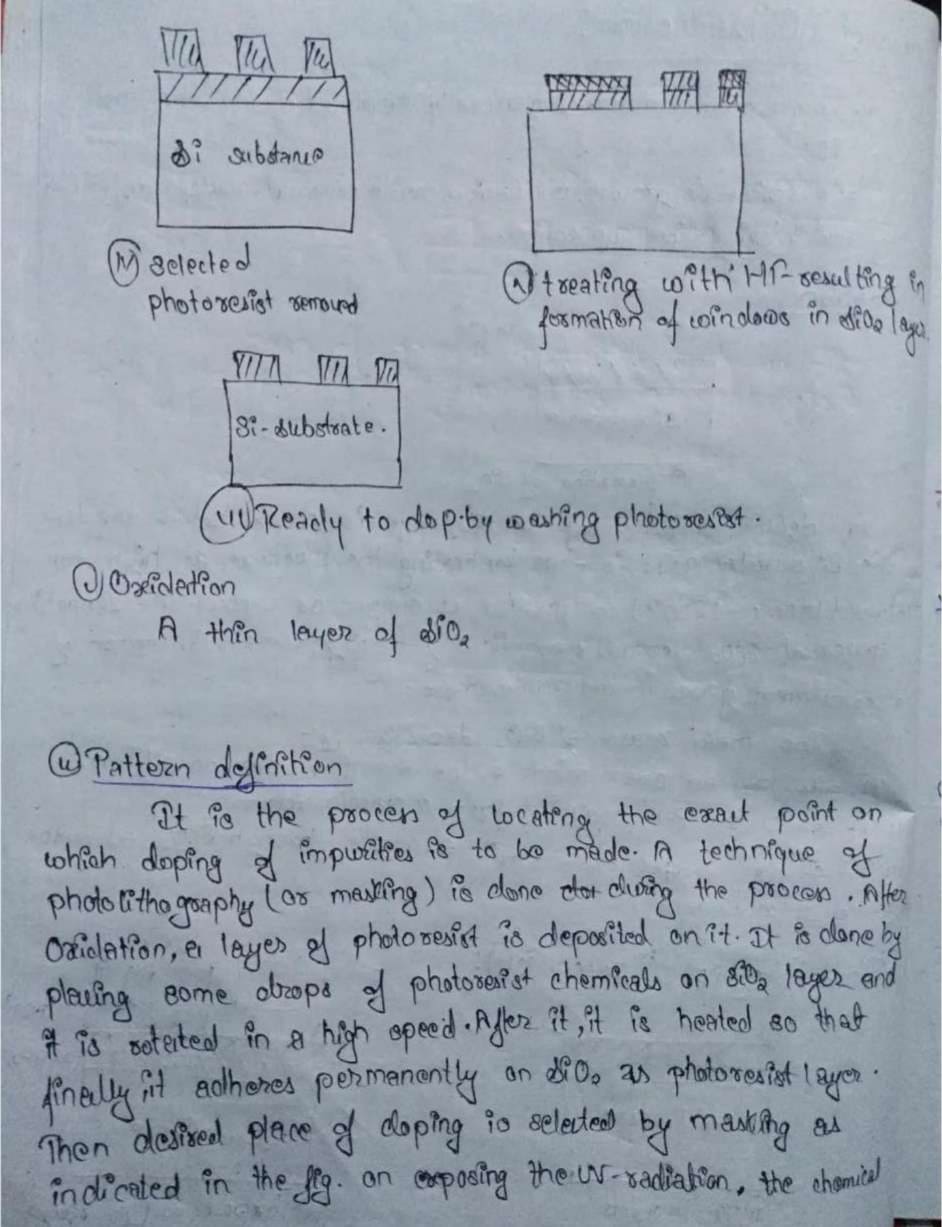 Si substance
(iv) selected
photoresist removed
(v) treating with HF resulting in
formation of windows in SiO2 layer
Si-substrate.
(vi) Ready to dop-by washing photoresist.
(i) Oxidation
A thin layer of SiO2
(ii) Pattern definition
It is the process of locating the exact point on
which doping of impurities is to be made. A technique of
photolithography (or masking) is done during the process. After
Oxidation, a layer of photoresist is deposited on it. It is done by
placing some drops of photoresist chemicals on SiO2 layer and
it is rotated in a high speed. After it, it is heated so that
finally, it adheres permanently on SiO2 as photoresist layer.
Then desired place of doping is selected by masking as
indicated in the fig. on exposing the UV-radiation, the chemical